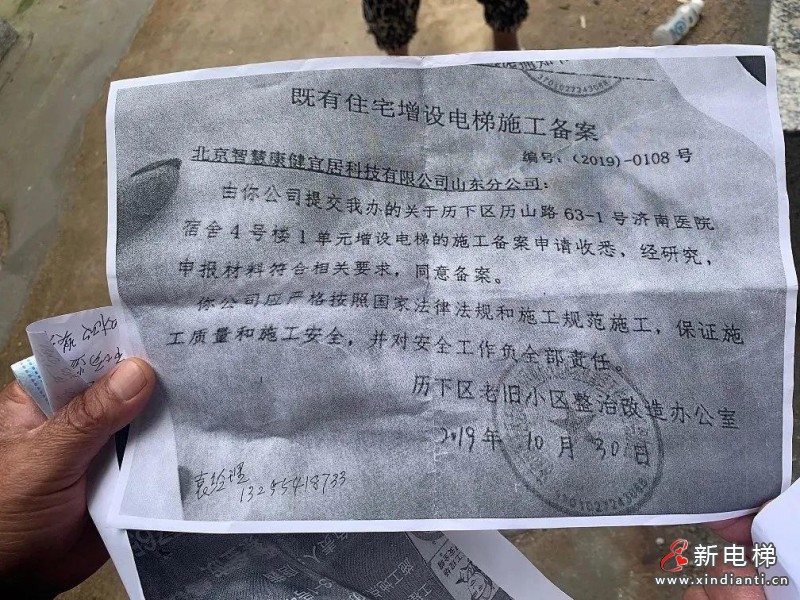 既有住宅增设电梯施工备案
编号:(2019)-0108号
北京智慧康健宜居科技有限公司山东分公司:
由你公司提交我办的关于历下区历山路63-1号济南医院
宿舍4号楼1单元增设电梯的施工备案申请收悉,经研究,
申报材料符合相关要求,同意备案。
你公司应严格按照国家法律法规和施工规范施工,保证施
工质量和施工安全,并对安全工作负全部责任。
历下区老旧小区整治改造办公室
2019年10月30日
袁经理
13295418733
新电梯
www.xindianti.cn